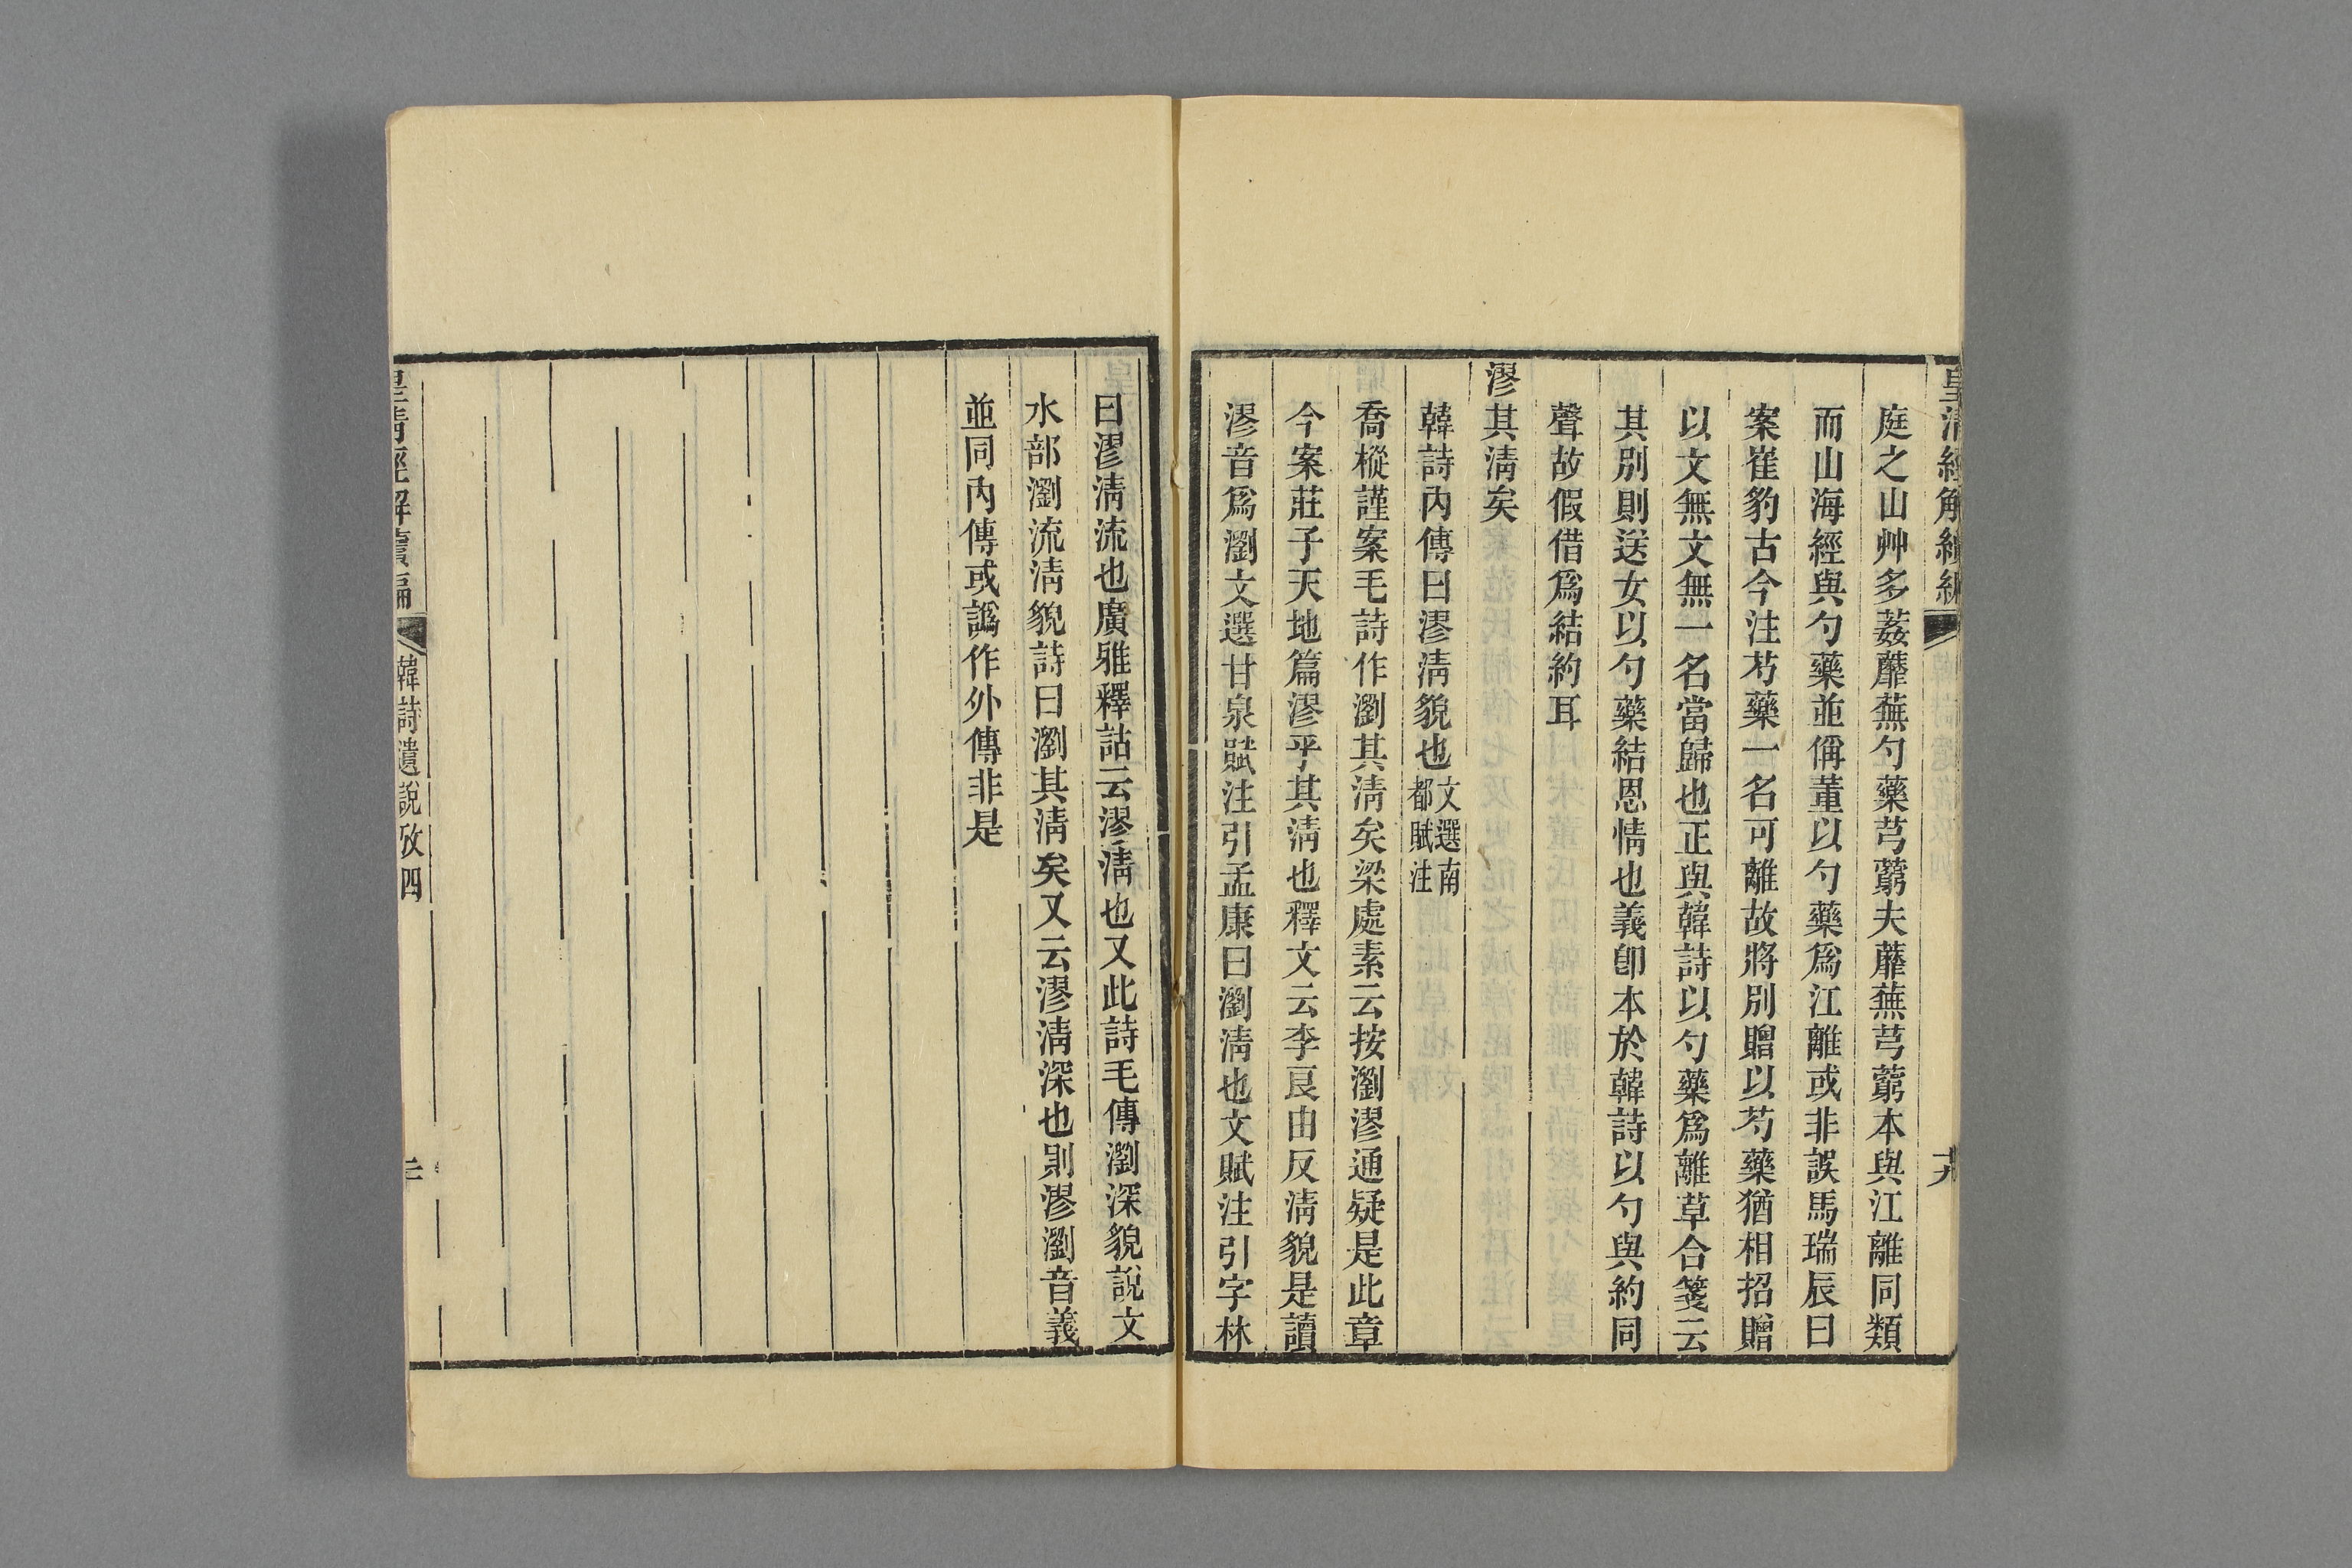 皇清經解續編
庭之山艸多葌蘼蕪勺藥芎藭夫蘼蕪芎藭本與江離同類
而山海經與勺藥並偁董以勺藥爲江離或非誤馬瑞辰曰
案崔豹古今注芍藥一名可離故將別贈以芍藥猶相招贈
以文無文無一名當歸也正與韓詩以勺藥爲離草合箋云
其別則送女以勺藥結恩情也義卽本於韓詩以勺與約同
聲故假借爲結約耳
漻其淸矣
韓詩內傳曰漻淸貌也文選南都賦注
喬樅謹案毛詩作瀏其淸矣梁處素云按瀏漻通疑是此章
今案莊子天地篇漻乎其淸也釋文云李良由反淸貌是讀
漻音爲瀏文選甘泉賦注引孟康曰瀏淸也文賦注引字林
曰漻淸流也廣雅釋詁云漻淸也又此詩毛傳瀏深貌說文
水部瀏流淸貌詩曰瀏其淸矣又云漻淸深也則漻瀏音義
並同內傳或譌作外傳非是
皇淸經解續編
韓詩遺說攷四